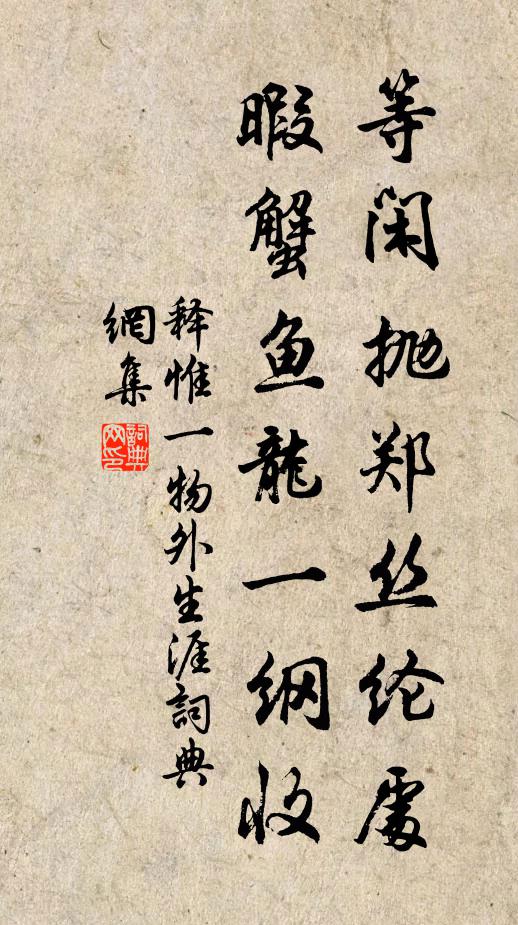 等闲抛郑丝纶处
暇蟹鱼龍一纲收
释惟一物外生涯詞典
網集
詞典
网印